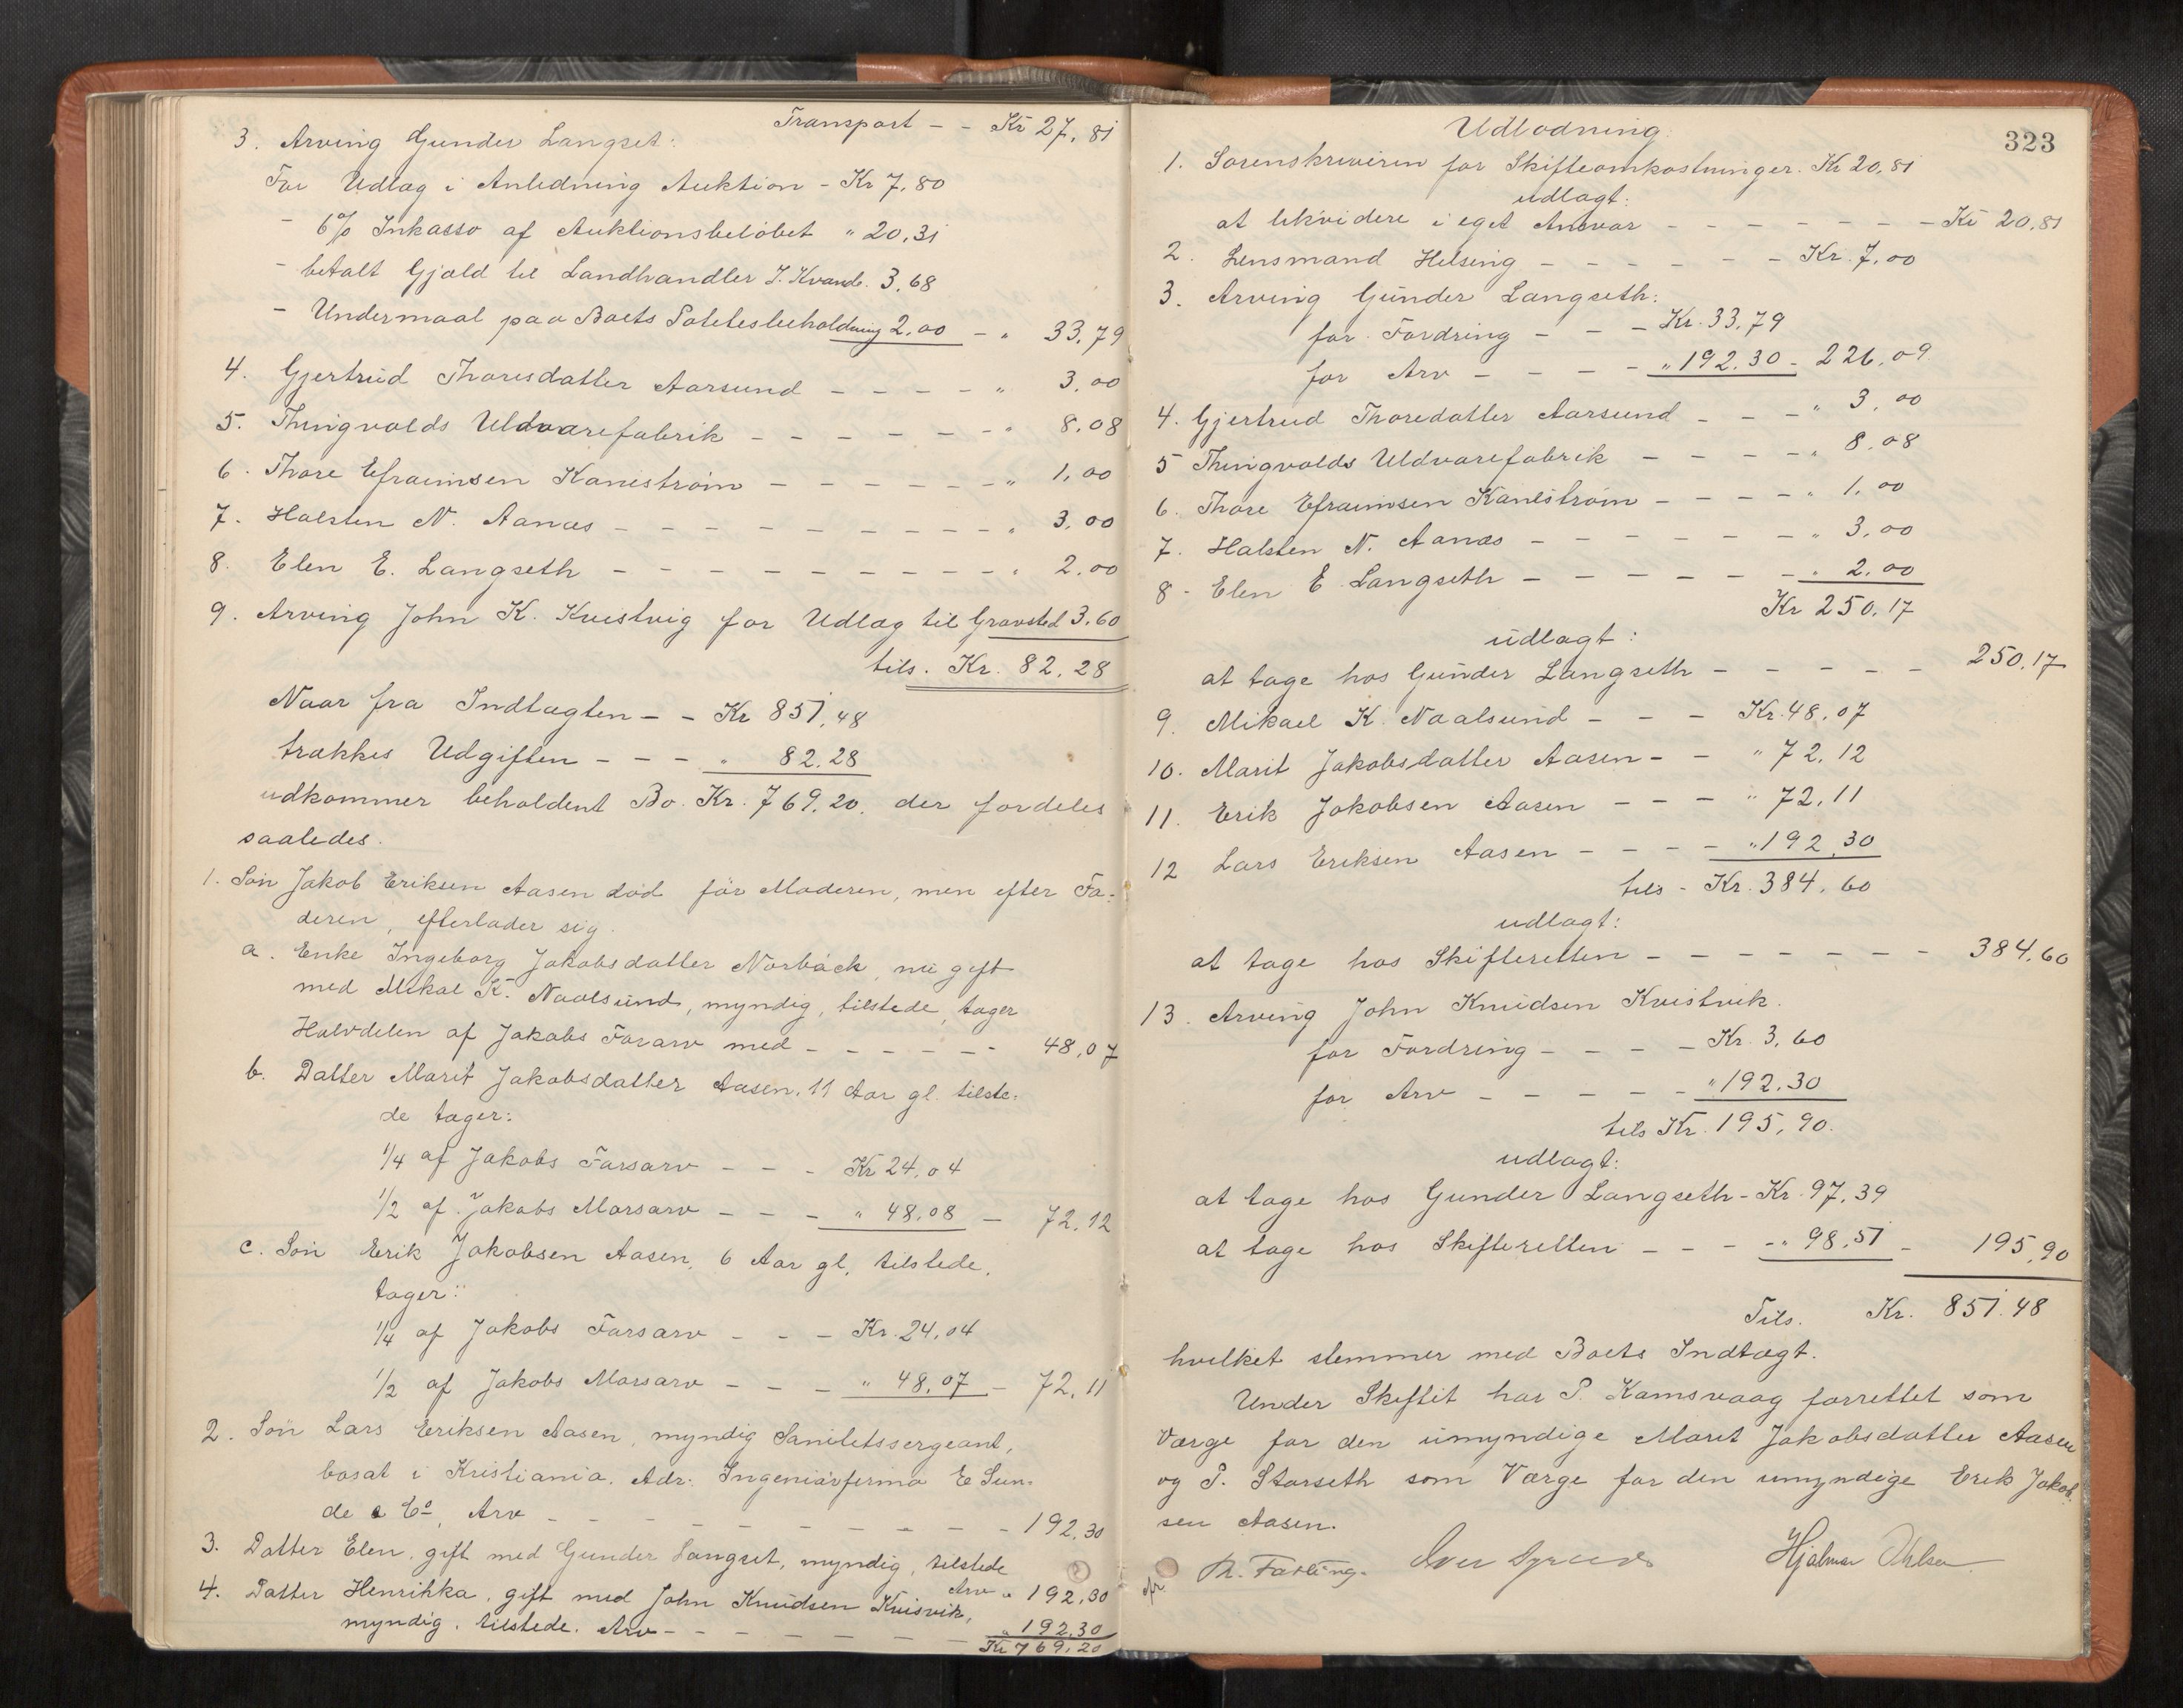 Transport - - Kr 27,81
3. Arving Gunder Langset:
For Udlæg i Anledning Auktion - Kr 7,80
- 6% Inkasso af Auktionsbeløbet " 20,31
- betalt Gjæld til Landhandler J. Kvande. 3,68
- Undermaal paa Boets Potetesbeholdning 2,00 - " 33,79
4. Gjertrud Thoresdatter Aarsund - - - - " 3,00
5. Thingvolds Uldvarefabrik - - - - - - " 8,08
6. Thore Efraimsen Kanestrøm - - - - - - " 1,00
7. Halsten N. Aanæs - - - - - - - - - " 3,00
8. Elen E. Langseth - - - - - - - - - " 2,00
9. Arving John K. Kvistvig for Udlæg til Gravsted 3,60
tils. Kr. 82,28
Naar fra Indtægten - - Kr 851,48
trækkes Udgiften - - - " 82,28
udkommer beholdent Bo. Kr. 769,20, der fordeles
saaledes.
1. Søn Jakob Eriksen Aasen død før Moderen, men efter Fa-
deren, efterlader sig.
a. Enke Ingeborg Jakobsdatter Norbäck, nu gift
med Mikal K. Naalsund, myndig, tilstede, tager
Halvdelen af Jakobs Fararv med - - - - - - 48,07
b. Datter Marit Jakobsdatter Aasen, 11 Aar gl. tilste-
de tager:
1/4 af Jakobs Farsarv - - - Kr 24,04
1/2 af Jakobs Morsarv - - - " 48,08 - 72,12
c. Søn Erik Jakobsen Aasen, 6 Aar gl, tilstede,
tager:
1/4 af Jakobs Farsarv - - - Kr. 24,04
1/2 af Jakobs Morsarv - - - " 48,07 - 72,11
2. Søn Lars Eriksen Aasen, myndig Sanitetssergeant,
bosat i Kristiania. Adr: Ingeniørfirma E Sun-
de & Co, Arv - - - - - - - - - - 192,30
3. Datter Elen, gift med Gunder Langset, myndig, tilstede
Arv " 192,30
4. Datter Henrikka, gift med John Knudsen Kvisvik,
myndig. tilstede. Arv - - - - - - - " 192,30
Kr 769,20
323
Udlodning
1. Sorenskriveren for Skifteomkostninger. Kr 20,81
udlagt:
at likvidere i eget Ansvar - - - - - - - Kr 20,81
2. Lensmand Helsing - - - - - - Kr. 7,00
3. Arving Gunder Langseth:
for Fordring - - - Kr. 33,79
for Arv - - - - " 192,30 - 226,09
4. Gjertrud Thoredatter Aarsund - - - " 3,00
5 Thingvolds Uldvarefabrik - - - - " 8,08
6. Thore Efraimsen Kanestrøm - - - - " 1,00
7. Halsten N. Aanæs - - - - - - " 3,00
8 - Elen E. Langseth - - - - - - " 2,00
Kr 250,17
udlagt:
at tage hos Gunder Langseth - - - - - 250,17
9. Mikael K. Naalsund - - - Kr. 48,07
10. Marit Jakobsdatter Aasen - - " 72,12
11. Erik Jakobsen Aasen - - - " 72,11
12 Lars Eriksen Aasen - - - - " 192,30
tils - Kr. 384,60
udlagt:
at tage hos Skifteretten - - - - - - - 384,60
13. Arving John Knudsen Kvistvik.
for Fordring - - - - Kr. 3,60
for Arv - - - - - " 192,30
tils Kr. 195,90.
udlagt:
at tage hos Gunder Langseth - Kr. 97,39
at tage hos Skifteretten - - - " 98,51 - 195,90
Tils. Kr. 851.48
hvilket stemmer med Boets Indtægt.
Under Skiftet har P. Kamsvaag forrettet som
Værge for den umyndige Maret Jakobsdatter Aasen
og P. Storseth som Værge for den umyndige Erik Jakob-
sen Aasen.
Hjalmar Ohlsen